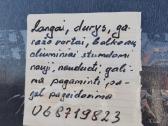 Langai, durys, ga-
ražo vartai, balkonų
aliuminiai stumdomi
nauji, naudoti, gali-
ma pagaminti pa-
gal pageidavimą
068719823